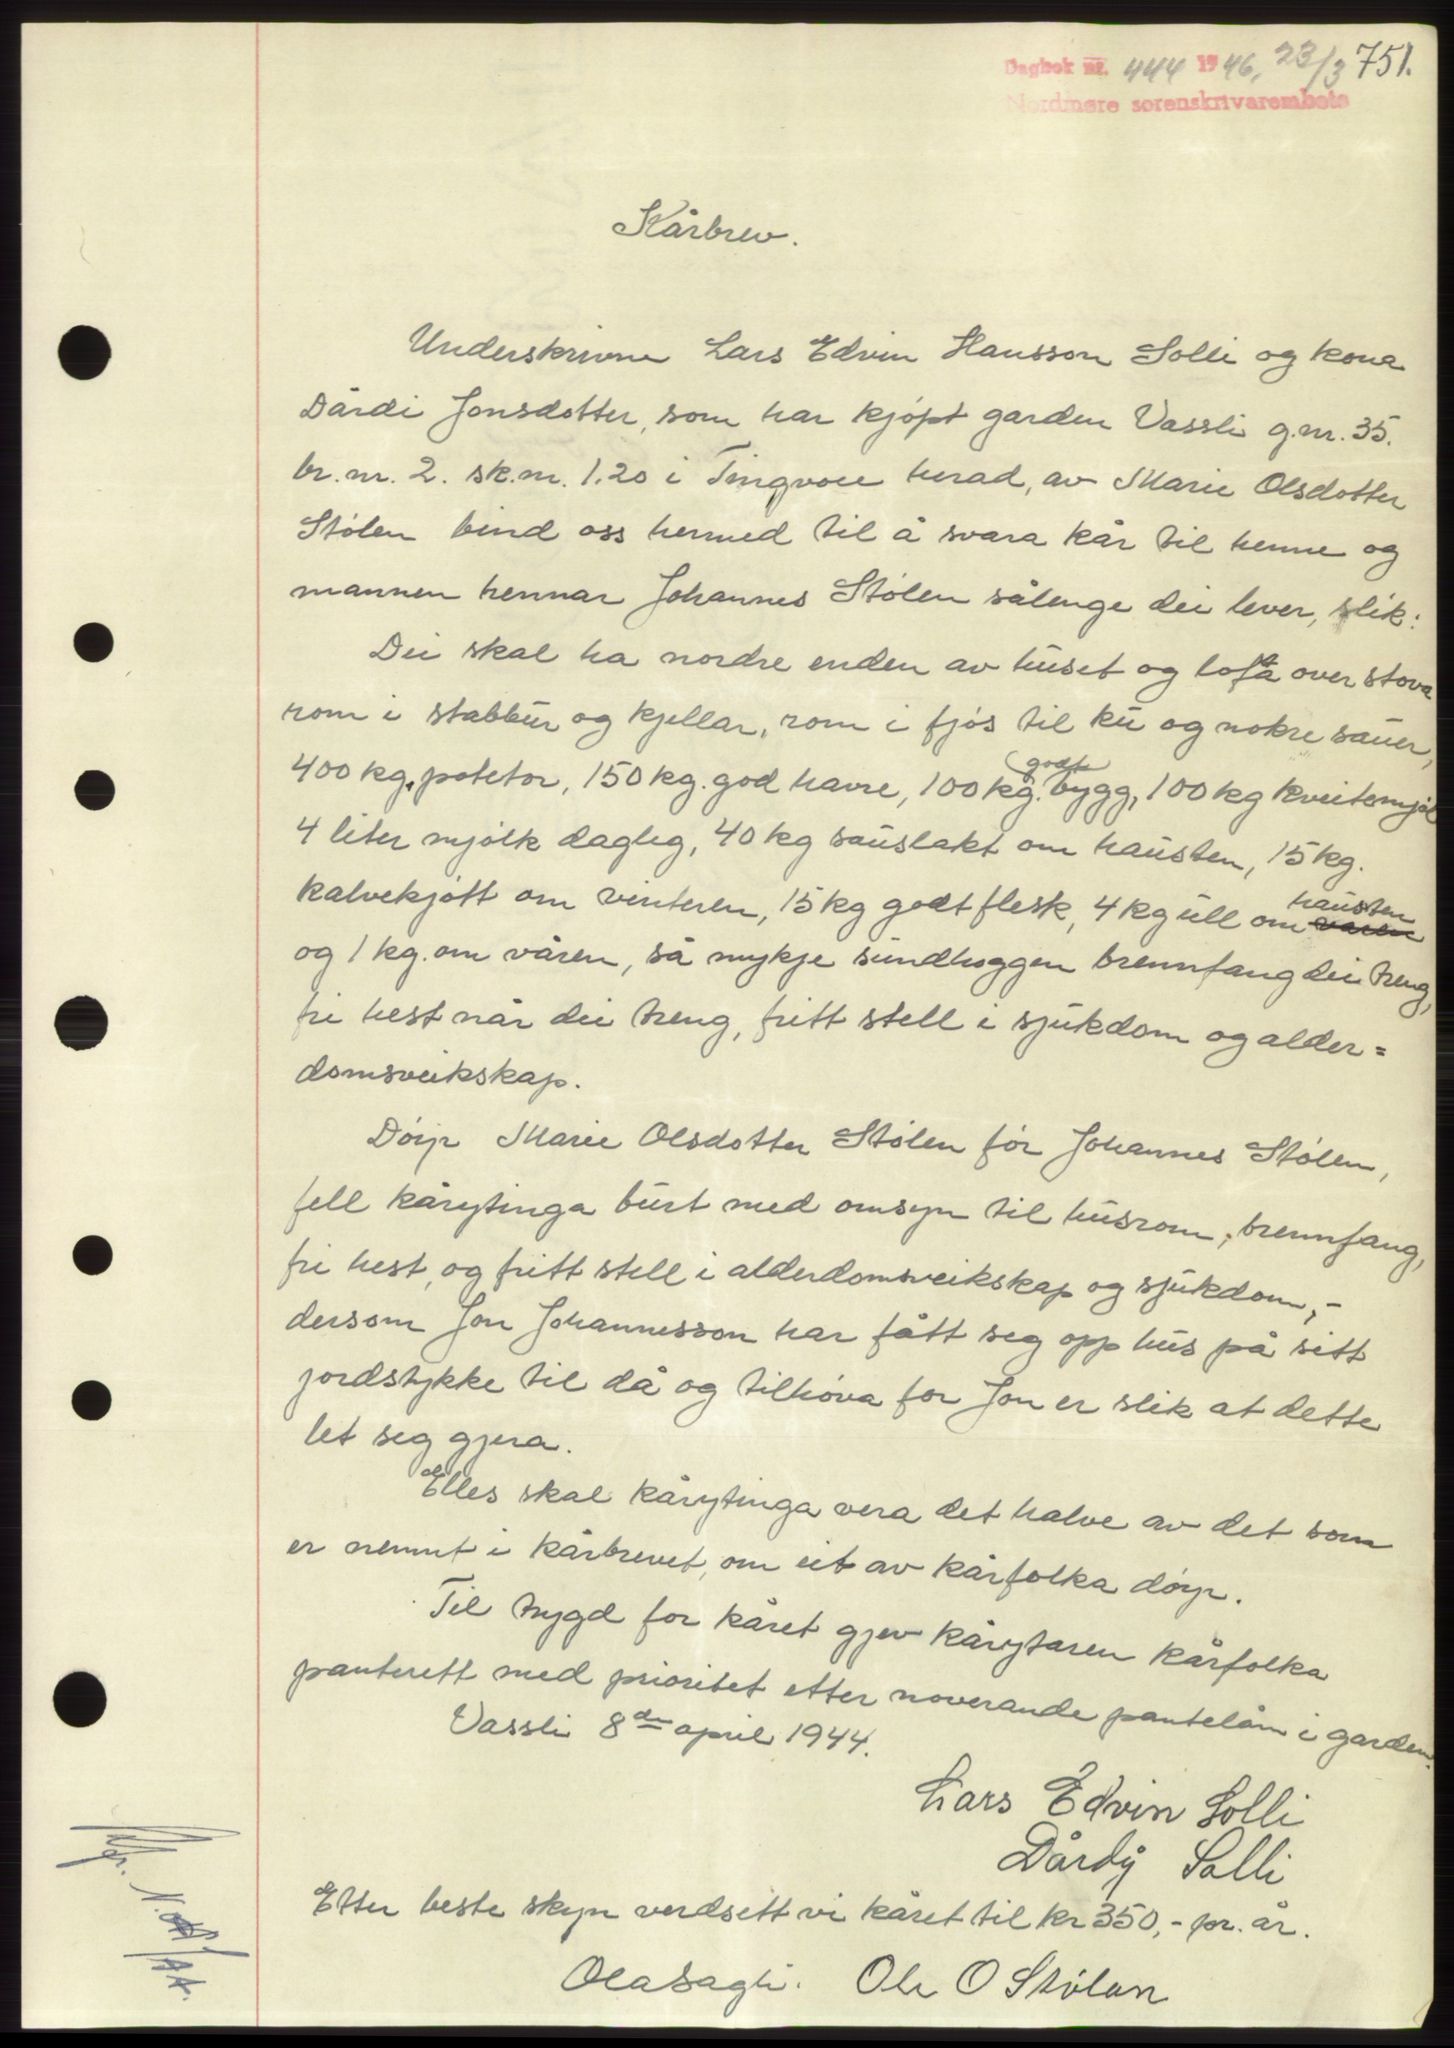 Dagbok nr. 444 1946, 23/3 751.
Nordmøre sorenskrivarembete
Kårbrev.
Underskrivne Lars Edvin Hansson Solli og kona
Dårdi Jonsdotter, som har kjøpt garden Vassli g.nr. 35.
br.nr. 2. sk.m. 1.20 i Tingvoll herad, av Marie Olsdotter
Stølen bind oss hermed til å svara kår til henne og
mannen hennar Johannes Stølen sålenge dei lever, slik:
Dei skal ha nordre enden av huset og lofta over stova
rom i stabbur og kjellar, rom i fjøs til ku og nokre sauer,
400 kg. potetor, 150 kg. god havre, 100 kg. godt bygg, 100 kg kveitemjøl
4 liter mjølk dagleg, 40 kg sauslakt om hausten, 15 kg.
kalvekjøtt om vinteren, 15 kg godt flesk, 4 kg ull om hausten
og 1 kg. om våren, så mykje sundhoggen brennfang dei treng,
fri hest når dei treng, fritt stell i sjukdom og alder=
domsveikskap.
Døyr Marie Olsdotter Stølen før Johannes Stølen,
fell kårytinga burt med omsyn til husrom, brennfang,
fri hest, og fritt stell i alderdomsveikskap og sjukdom,-
dersom Jon Johannesson har fått seg opp hus på sitt
jordstykke til då og tilhøva for Jon er slik at dette
let seg gjera.
Elles skal kårytinga vera det halve av det som
er nemnt i kårbrevet, om eit av kårfolka døyr.
Til trygd for kåret gjev kårytaren kårfolka
panterett med prioritet etter noverande pantelån i garden.
Vassli 8de april 1944.
Lars Edvin Solli
Dårdy Solli
Etter beste skyn verdsett vi kåret til kr 350,- pr. år.
Ola Sagli. Ole O Stølen